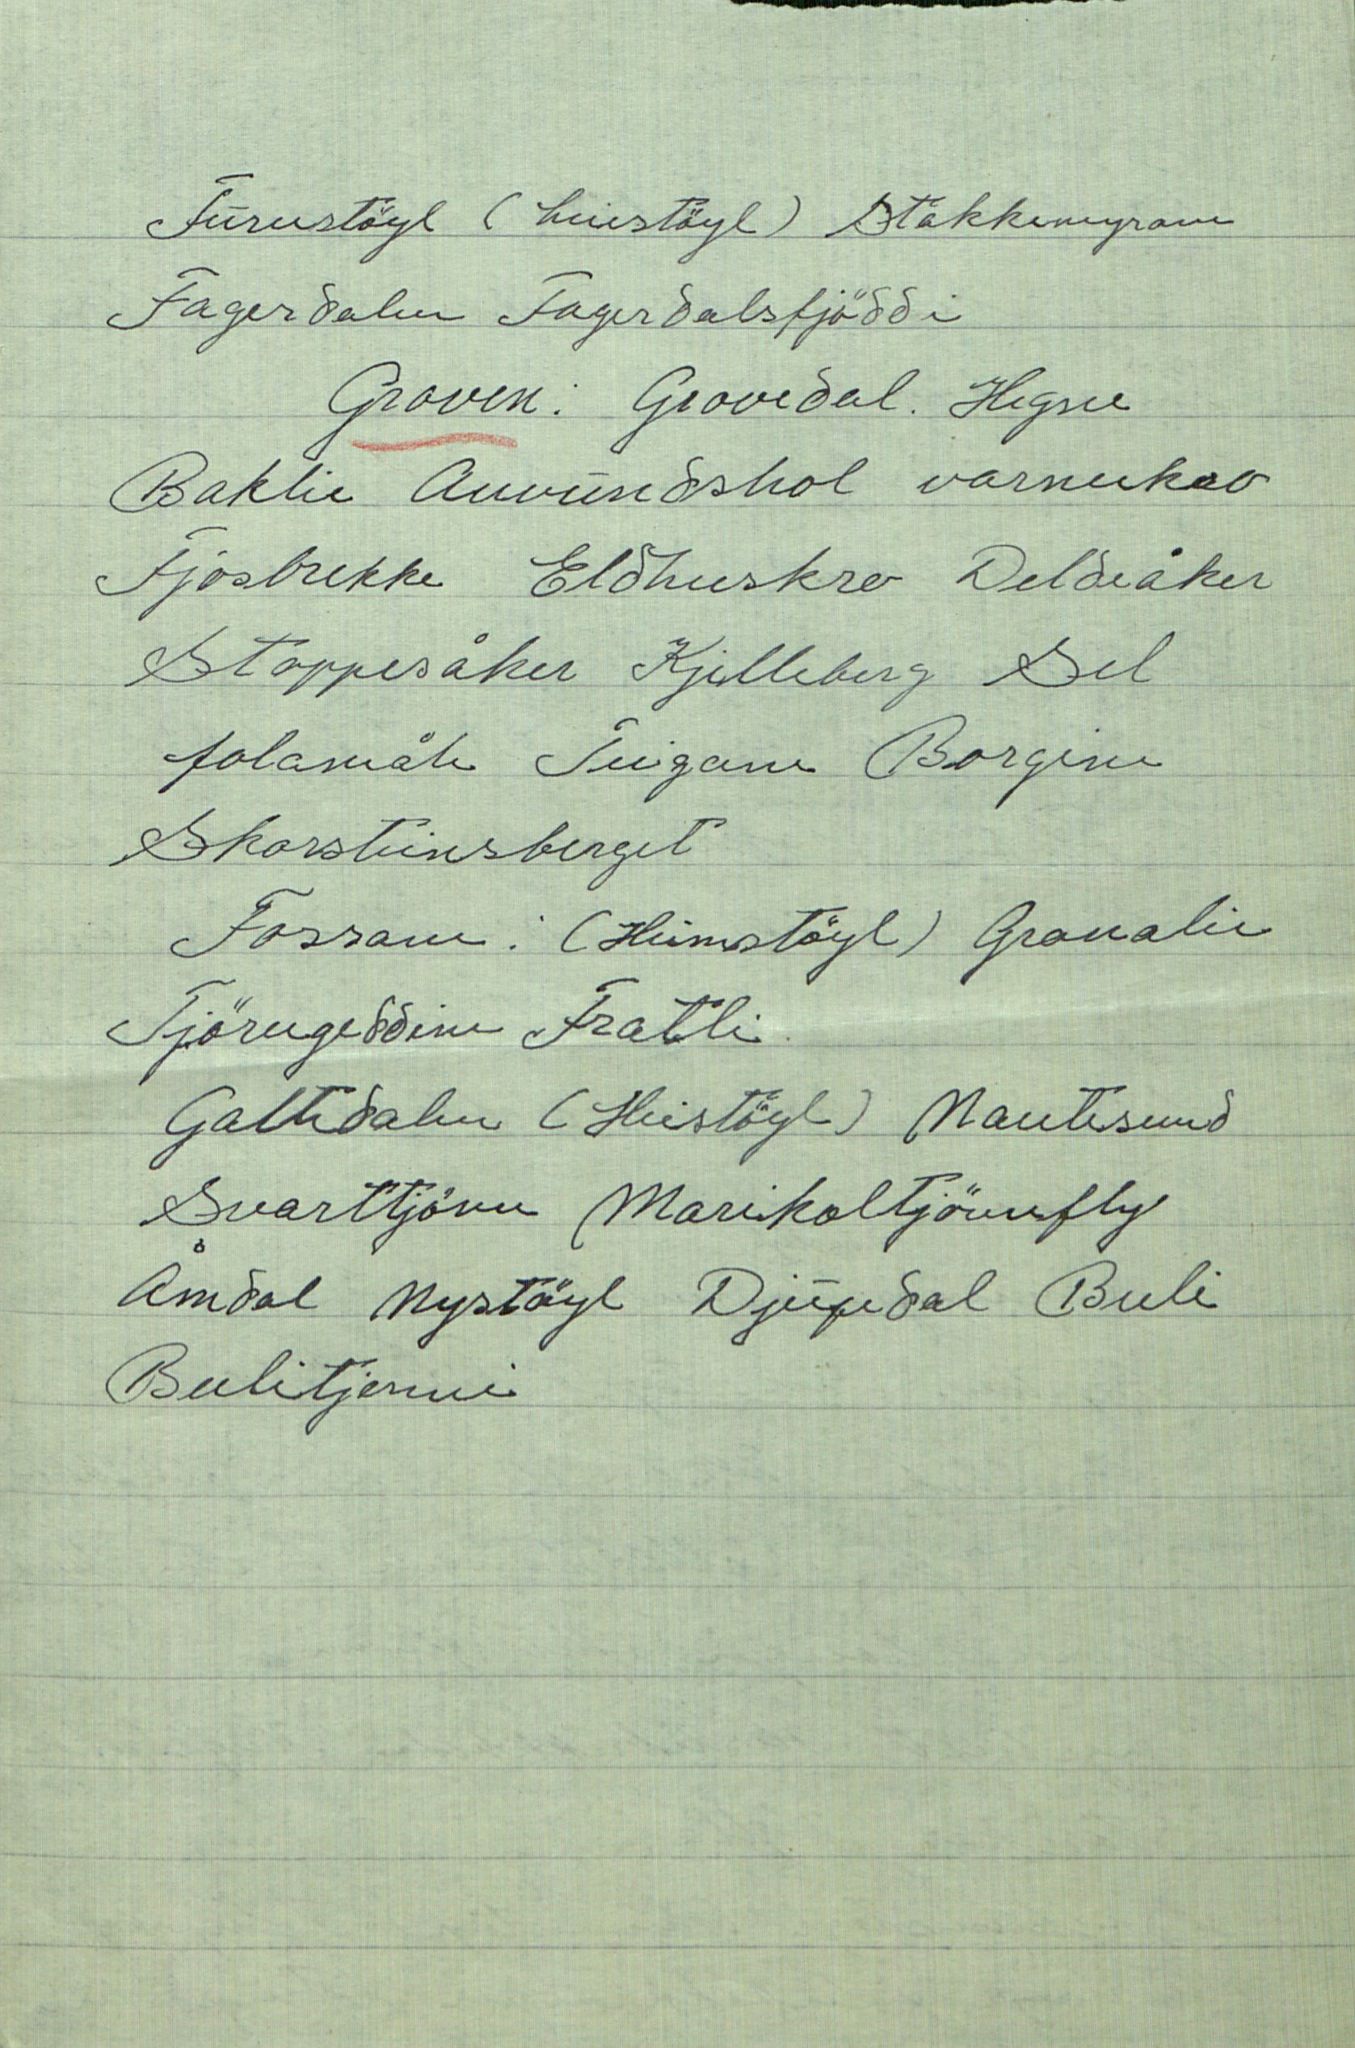 Furustöyl (heiestöyl) Støkkemyrane
Fagerdalen Fagerdalsfjöddi
Groven: Grovedal. Hegne
Baklie Anvundshol varnekro
Fjosbrekke Eldhuskro Deldeåker
Stoppesåker Kjelleberg Sel
folamåle Teigane Borgine
Skorsteinsberget
Fossane: (Heimstöyl) Granalie
Tjörugeddine Fratli.
Galtedalen (Heiestöyl) Nautesund
Svarttjönn Marikoltjönnfly
Åmdal Nystöyl Djupedal Buli
Bulitjenni